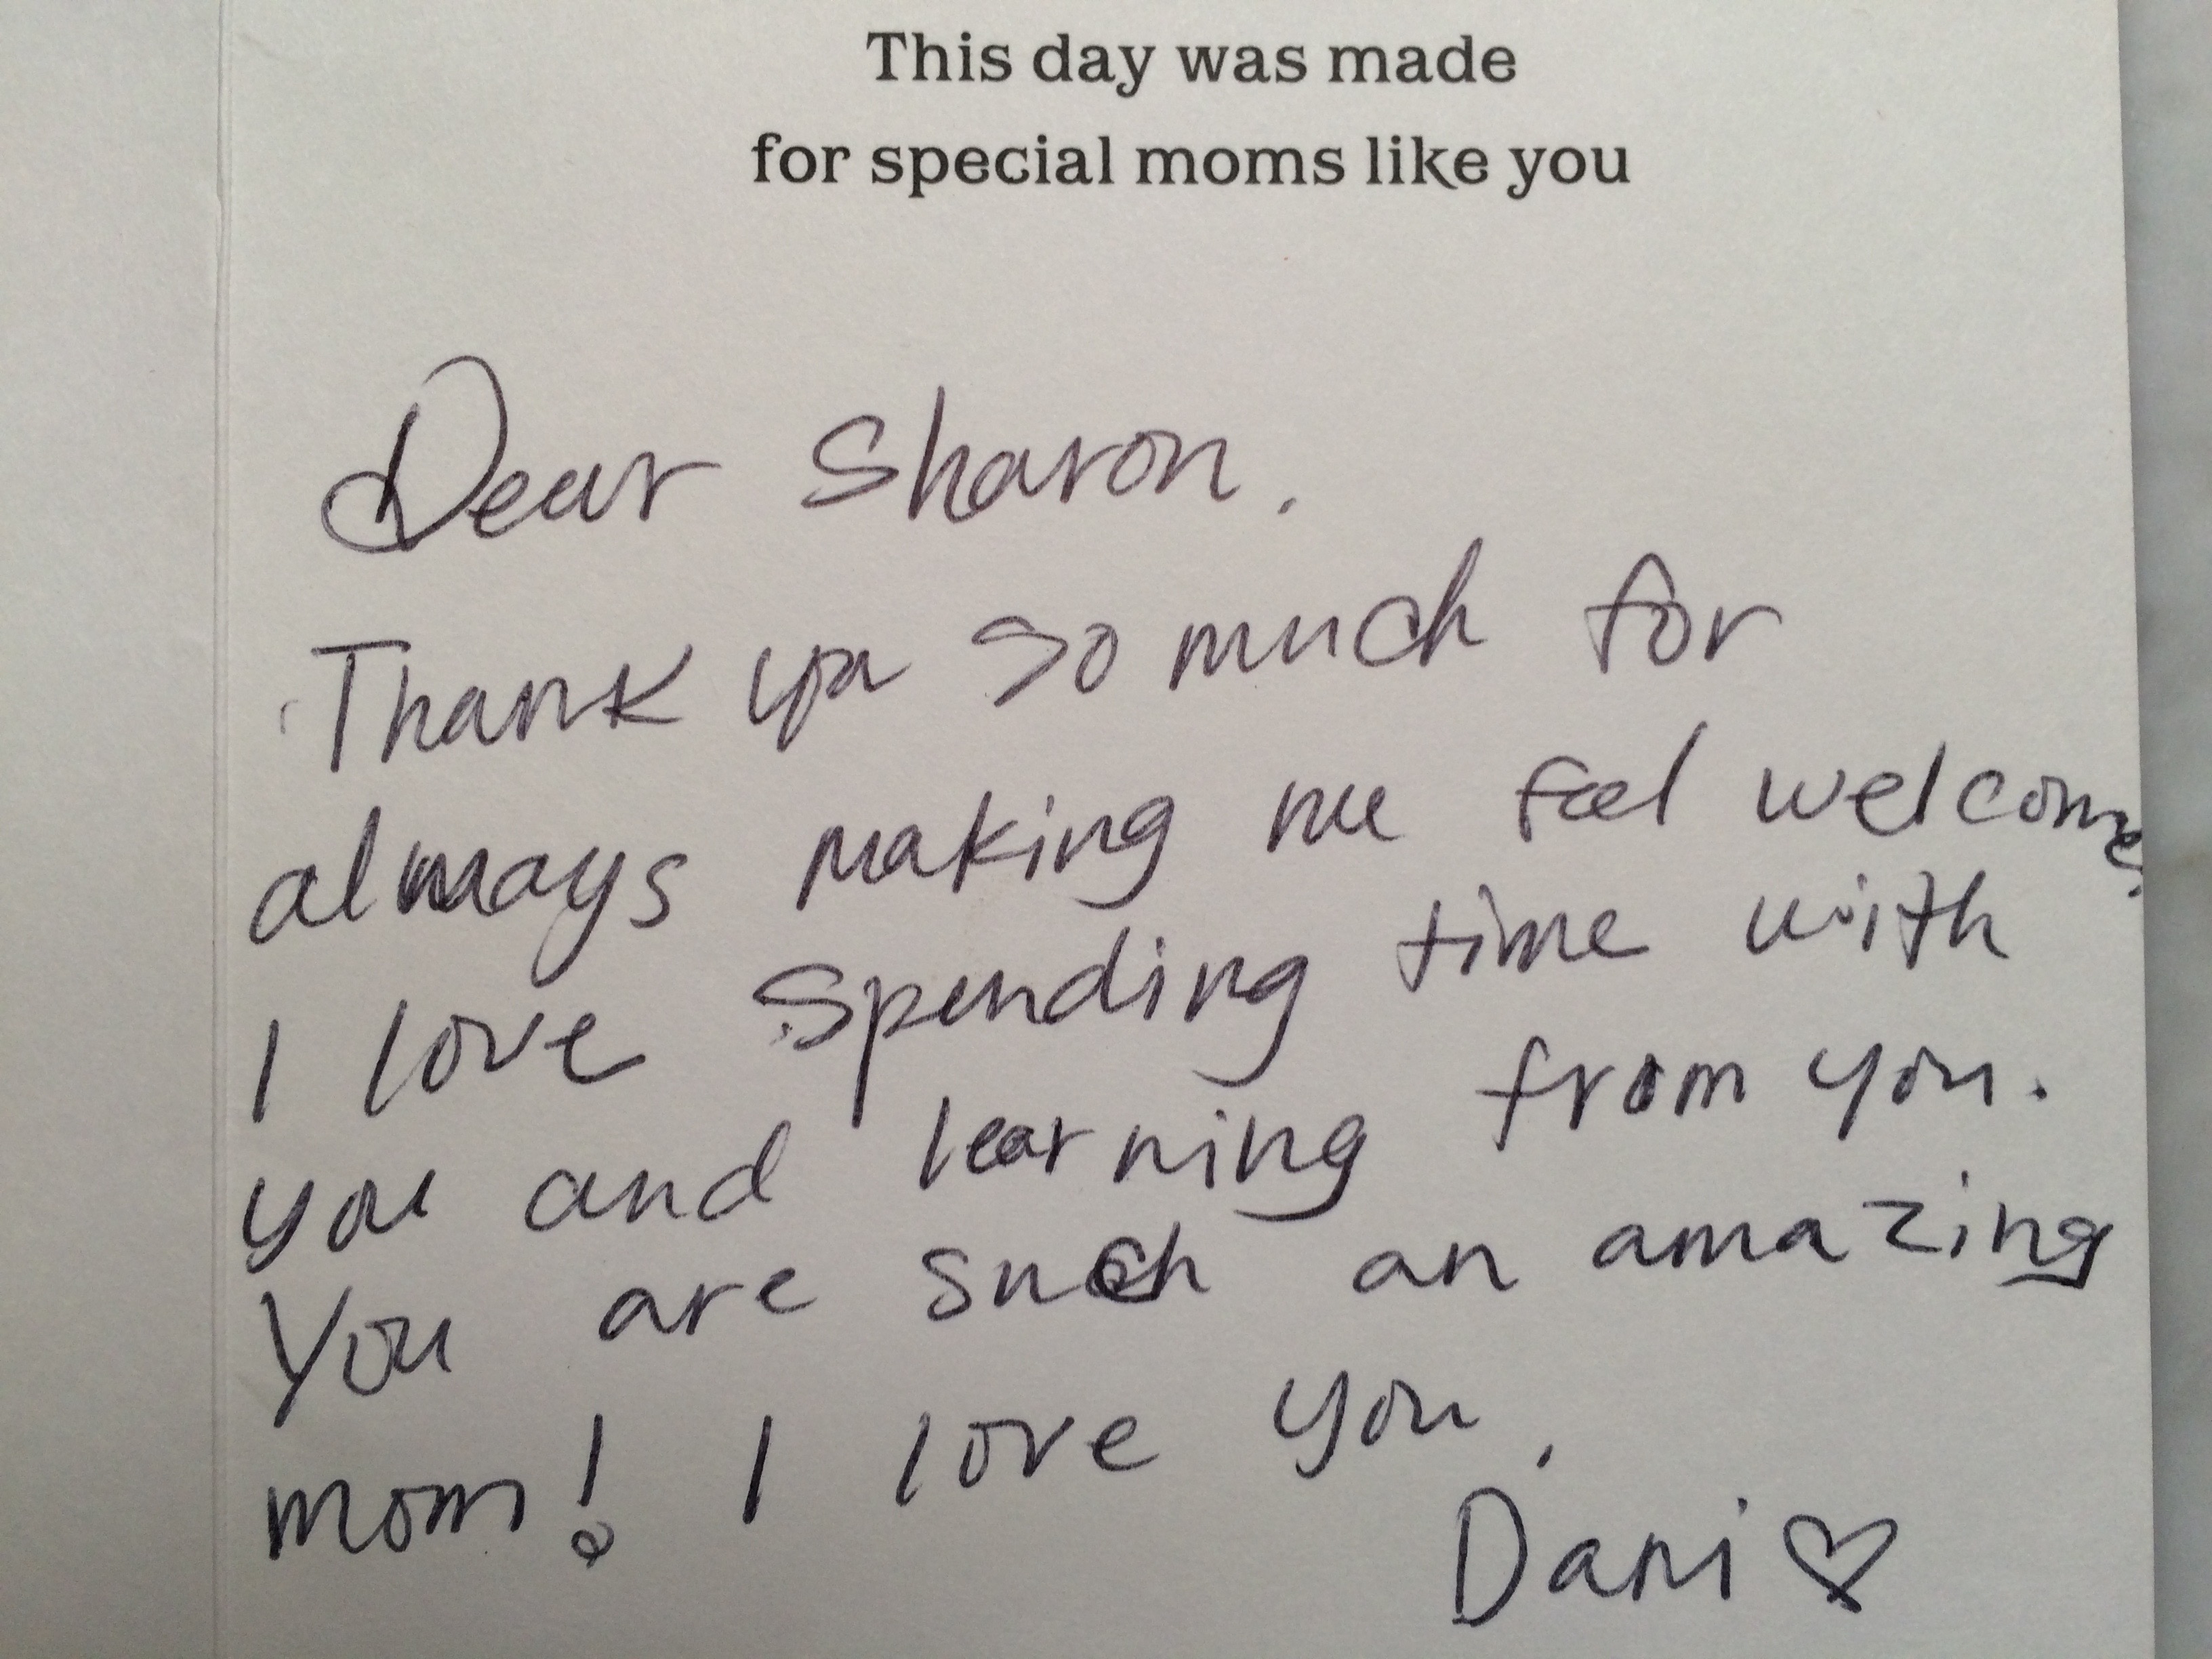 This day was made
for special moms like you
Dear Sharon.
Thank you so much for
always making me feel welcome.
I love spending time with
you and learning from you.
You are such an amazing
mom! I love you.
Dani ♡